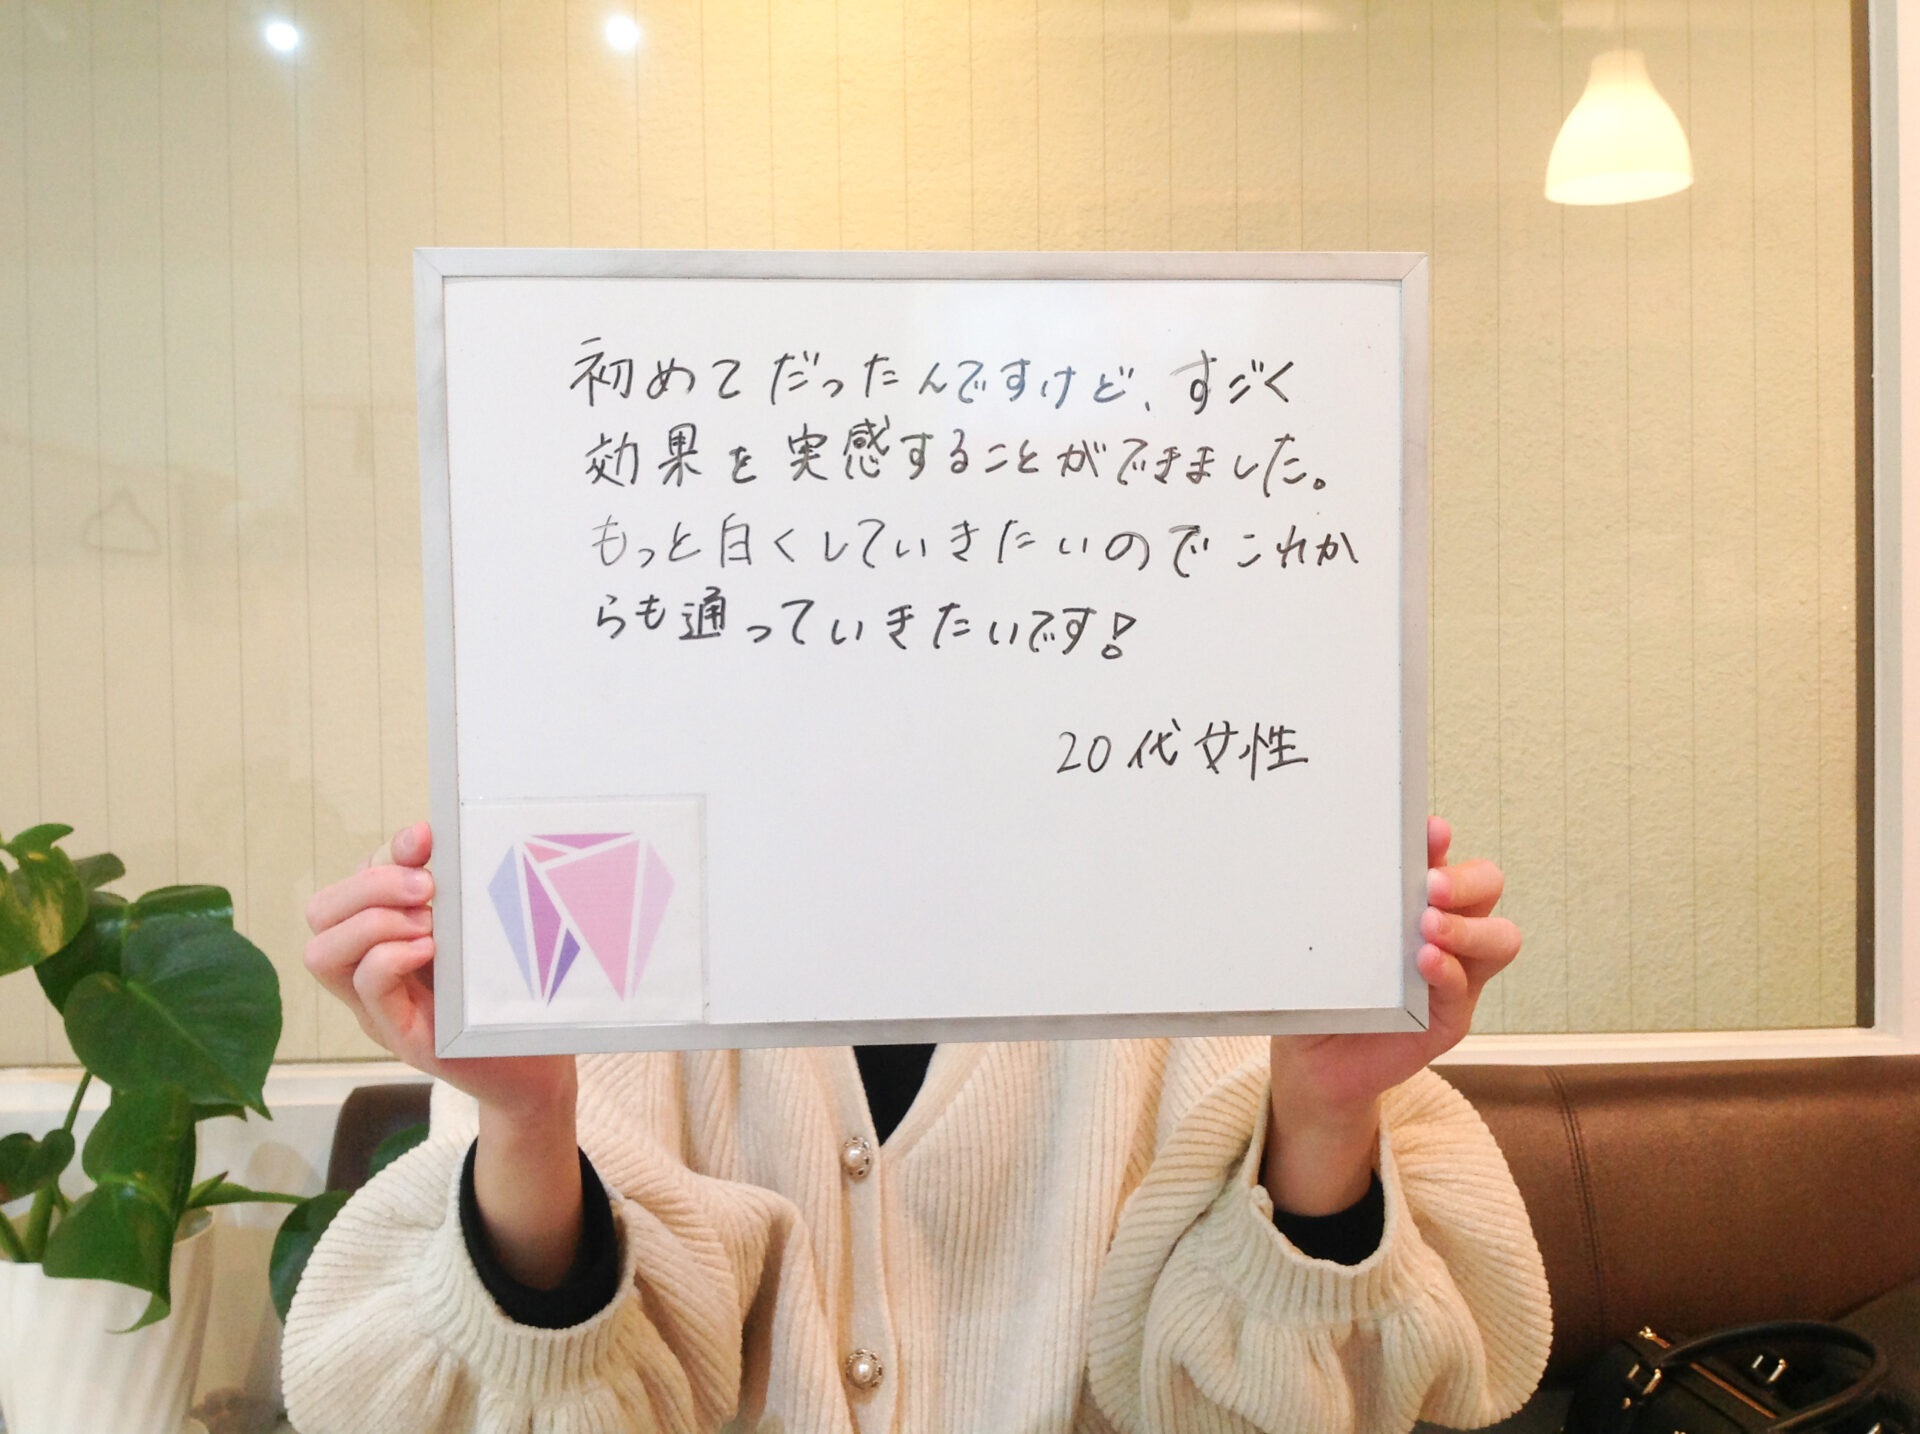 初めてだったんですけど、すごく
効果を実感することができました。
もっと白くしていきたいのでこれか
らも通っていきたいです!
20代女性